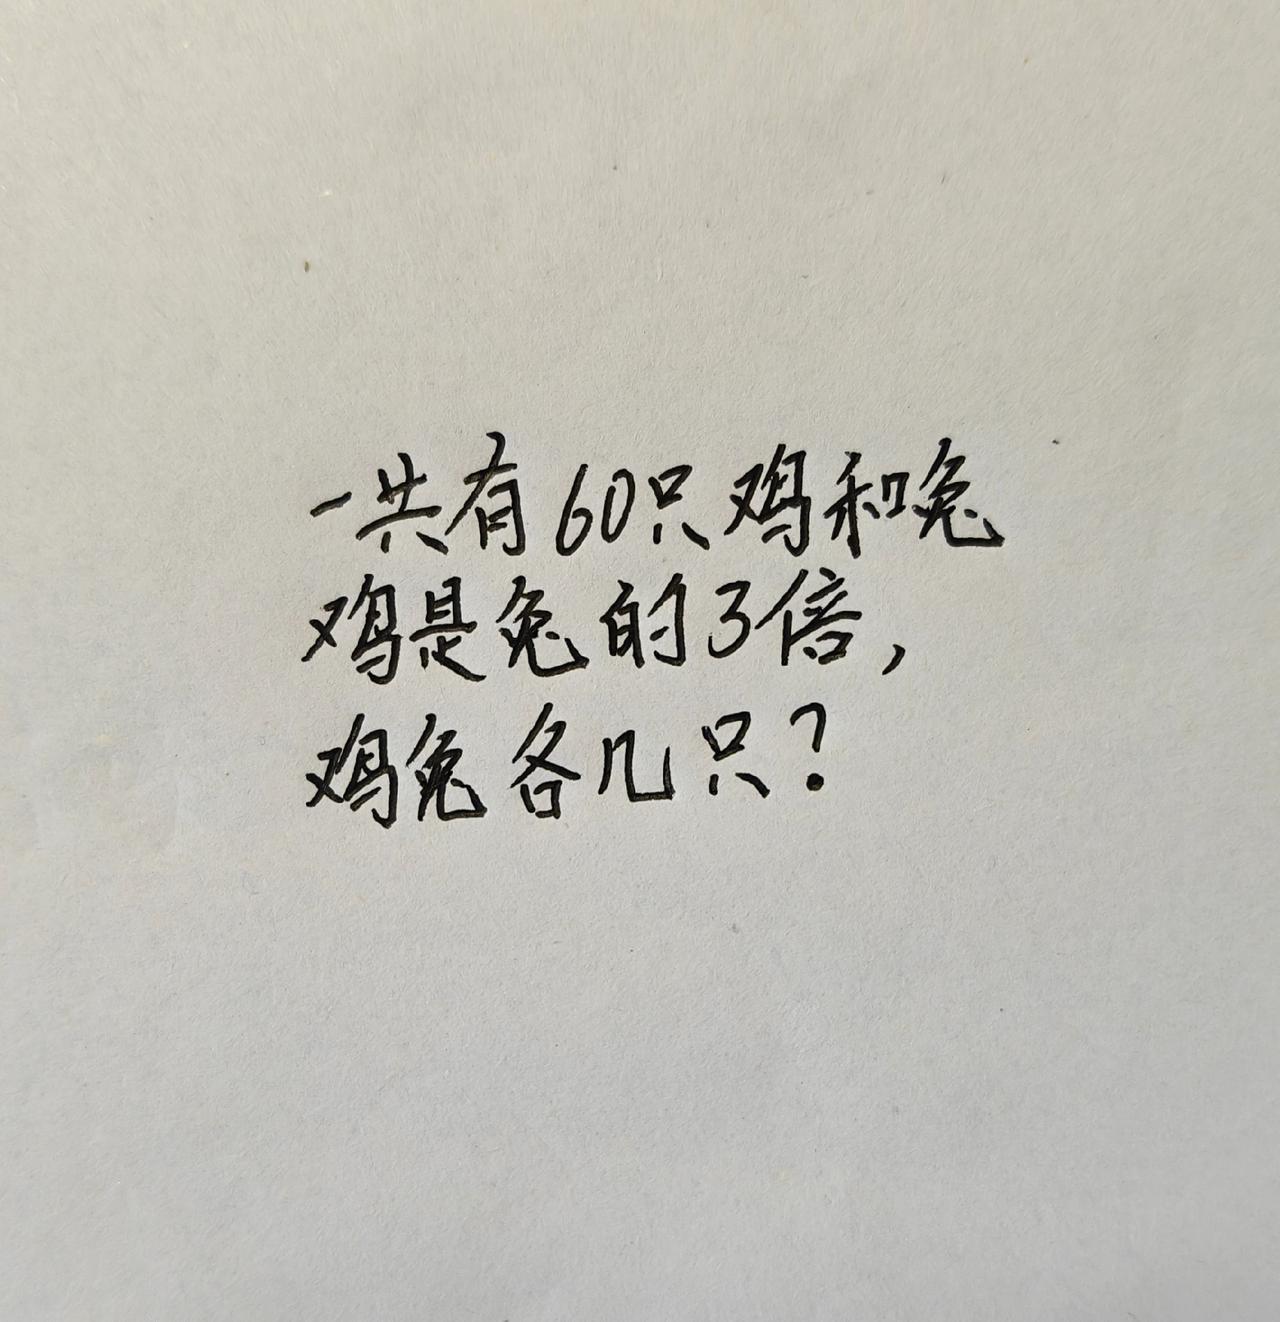 一共有60只鸡和兔
鸡是兔的3倍,
鸡兔各几只?